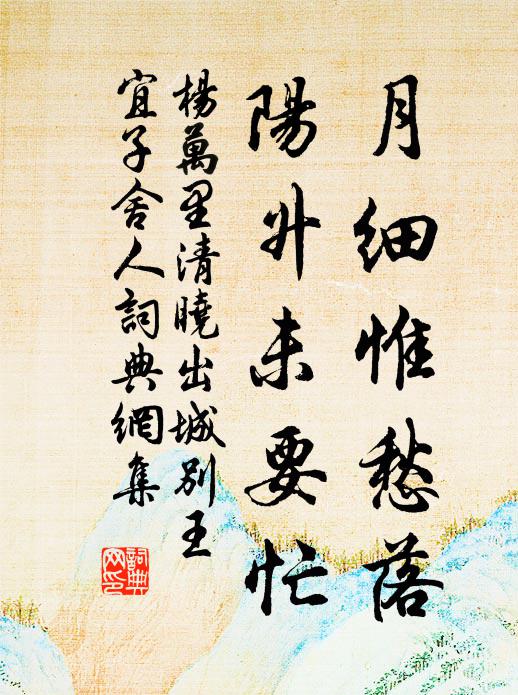 月细惟愁落
陽升未要忙
楊萬里清曉出城別王
宜子舍人詞典網集
詞典
网印